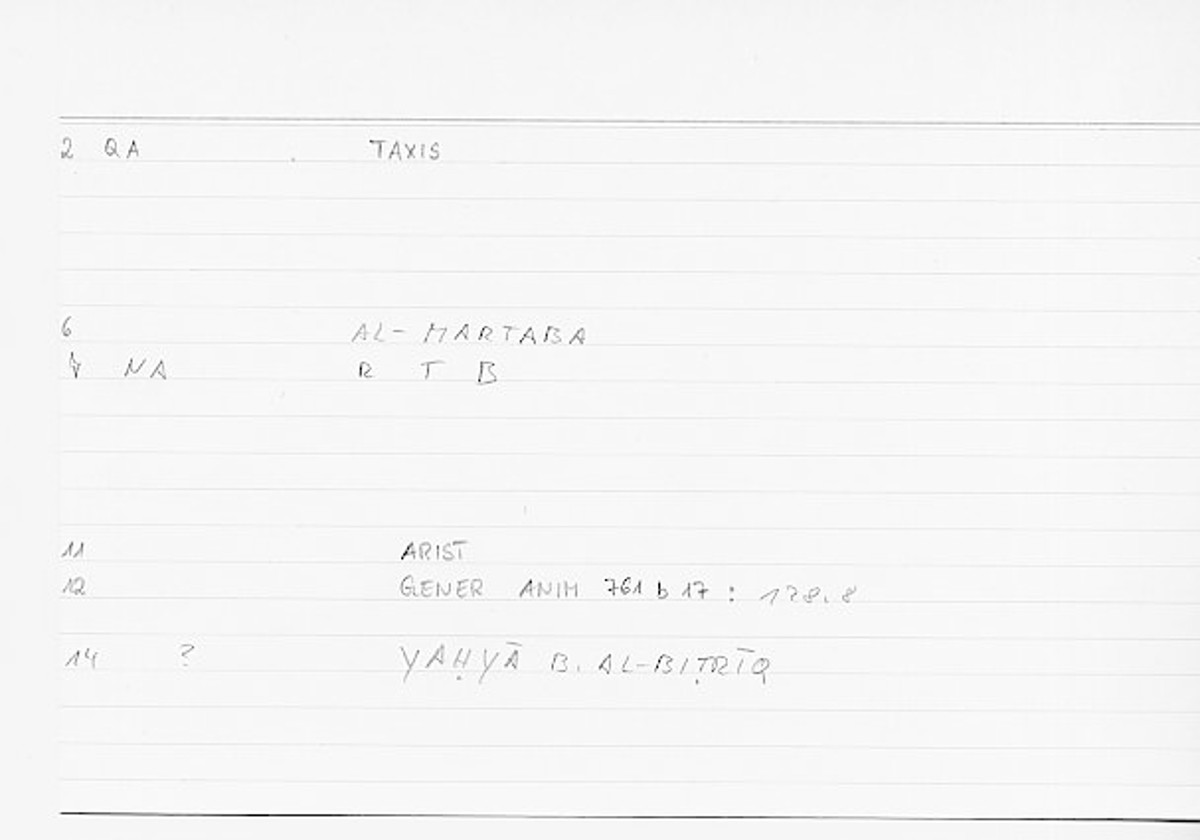 2 QA TAXIS
6 AL-MARTABA
7 NA R T B
11 ARIST
12 GENER ANIM 761 b 17 : 128.8
14 ? YAḤYĀ B. AL-BIṬRĪQ